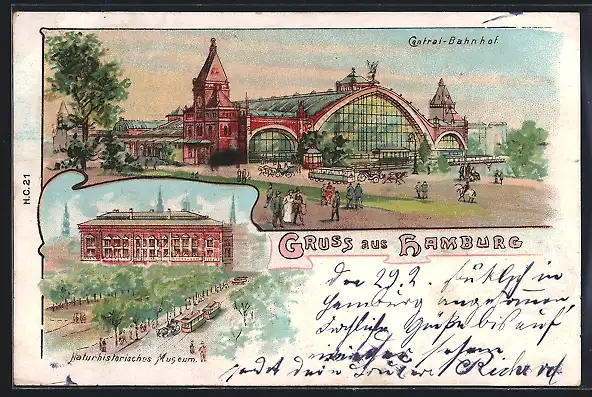 Central-Bahnhof.
H.C. 21
GRUSS AUS HAMBURG
Naturhistorisches Museum.
den 29 2. glücklich in
Hamburg angekommen,
herzliche Grüße bis auf
wieder sehen
dein Richard